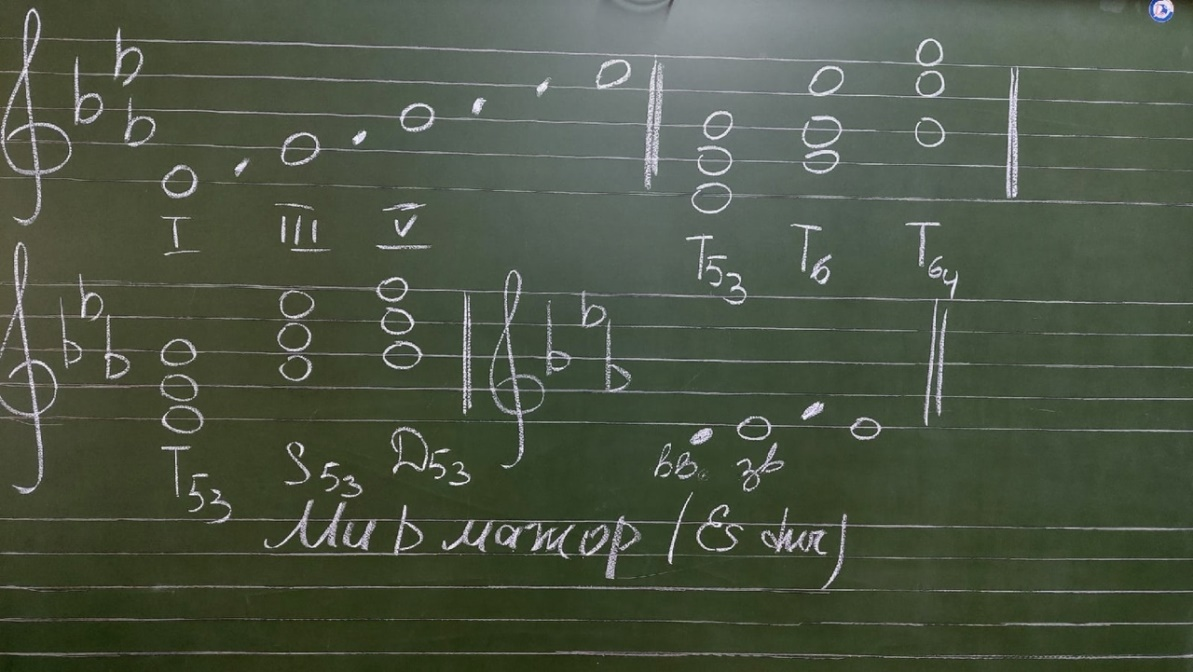 I III V
T53 T6 T64
T53 S53 D53 вв. зв
Ми b мажор (Es dur)